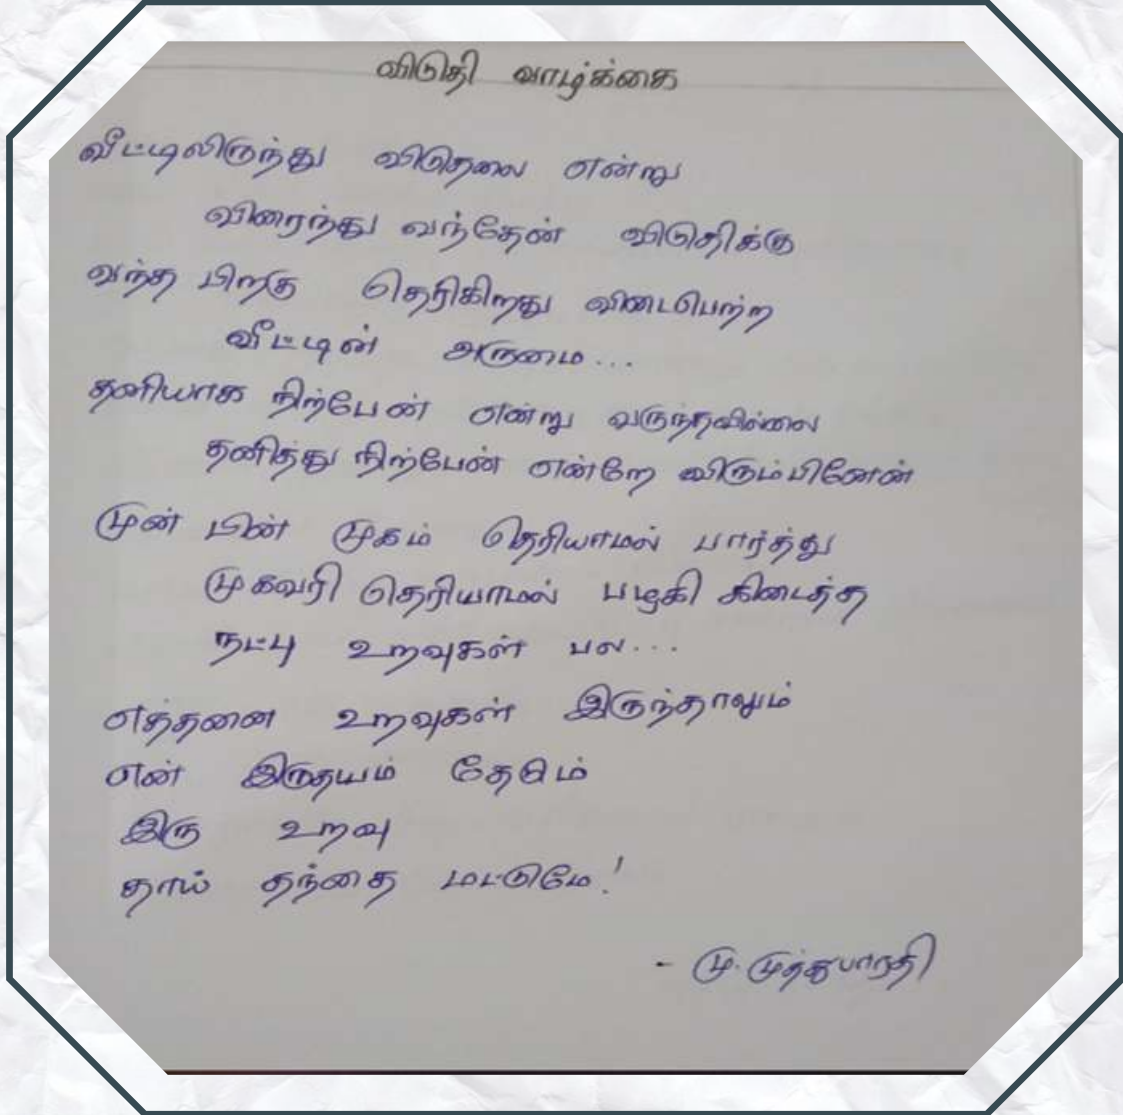 விடுதி வாழ்க்கை
வீட்டிலிருந்து விடுதலை என்று
விரைந்து வந்தேன் விடுதிக்கு
வந்த பிறகு தெரிகிறது விடைபெற்ற
வீட்டின் அருமை...
தனியாக நிற்பேன் என்று வருந்தவில்லை
தனித்து நிற்பேன் என்றே விரும்பினேன்
முன் பின் முகம் தெரியாமல் பார்த்து
முகவரி தெரியாமல் பழகி கிடைத்த
நட்பு உறவுகள் பல...
எத்தனை உறவுகள் இருந்தாலும்
என் இருதயம் தேடும்
இரு உறவு
தாய் தந்தை மட்டுமே!
- மு. முத்துபாரதி